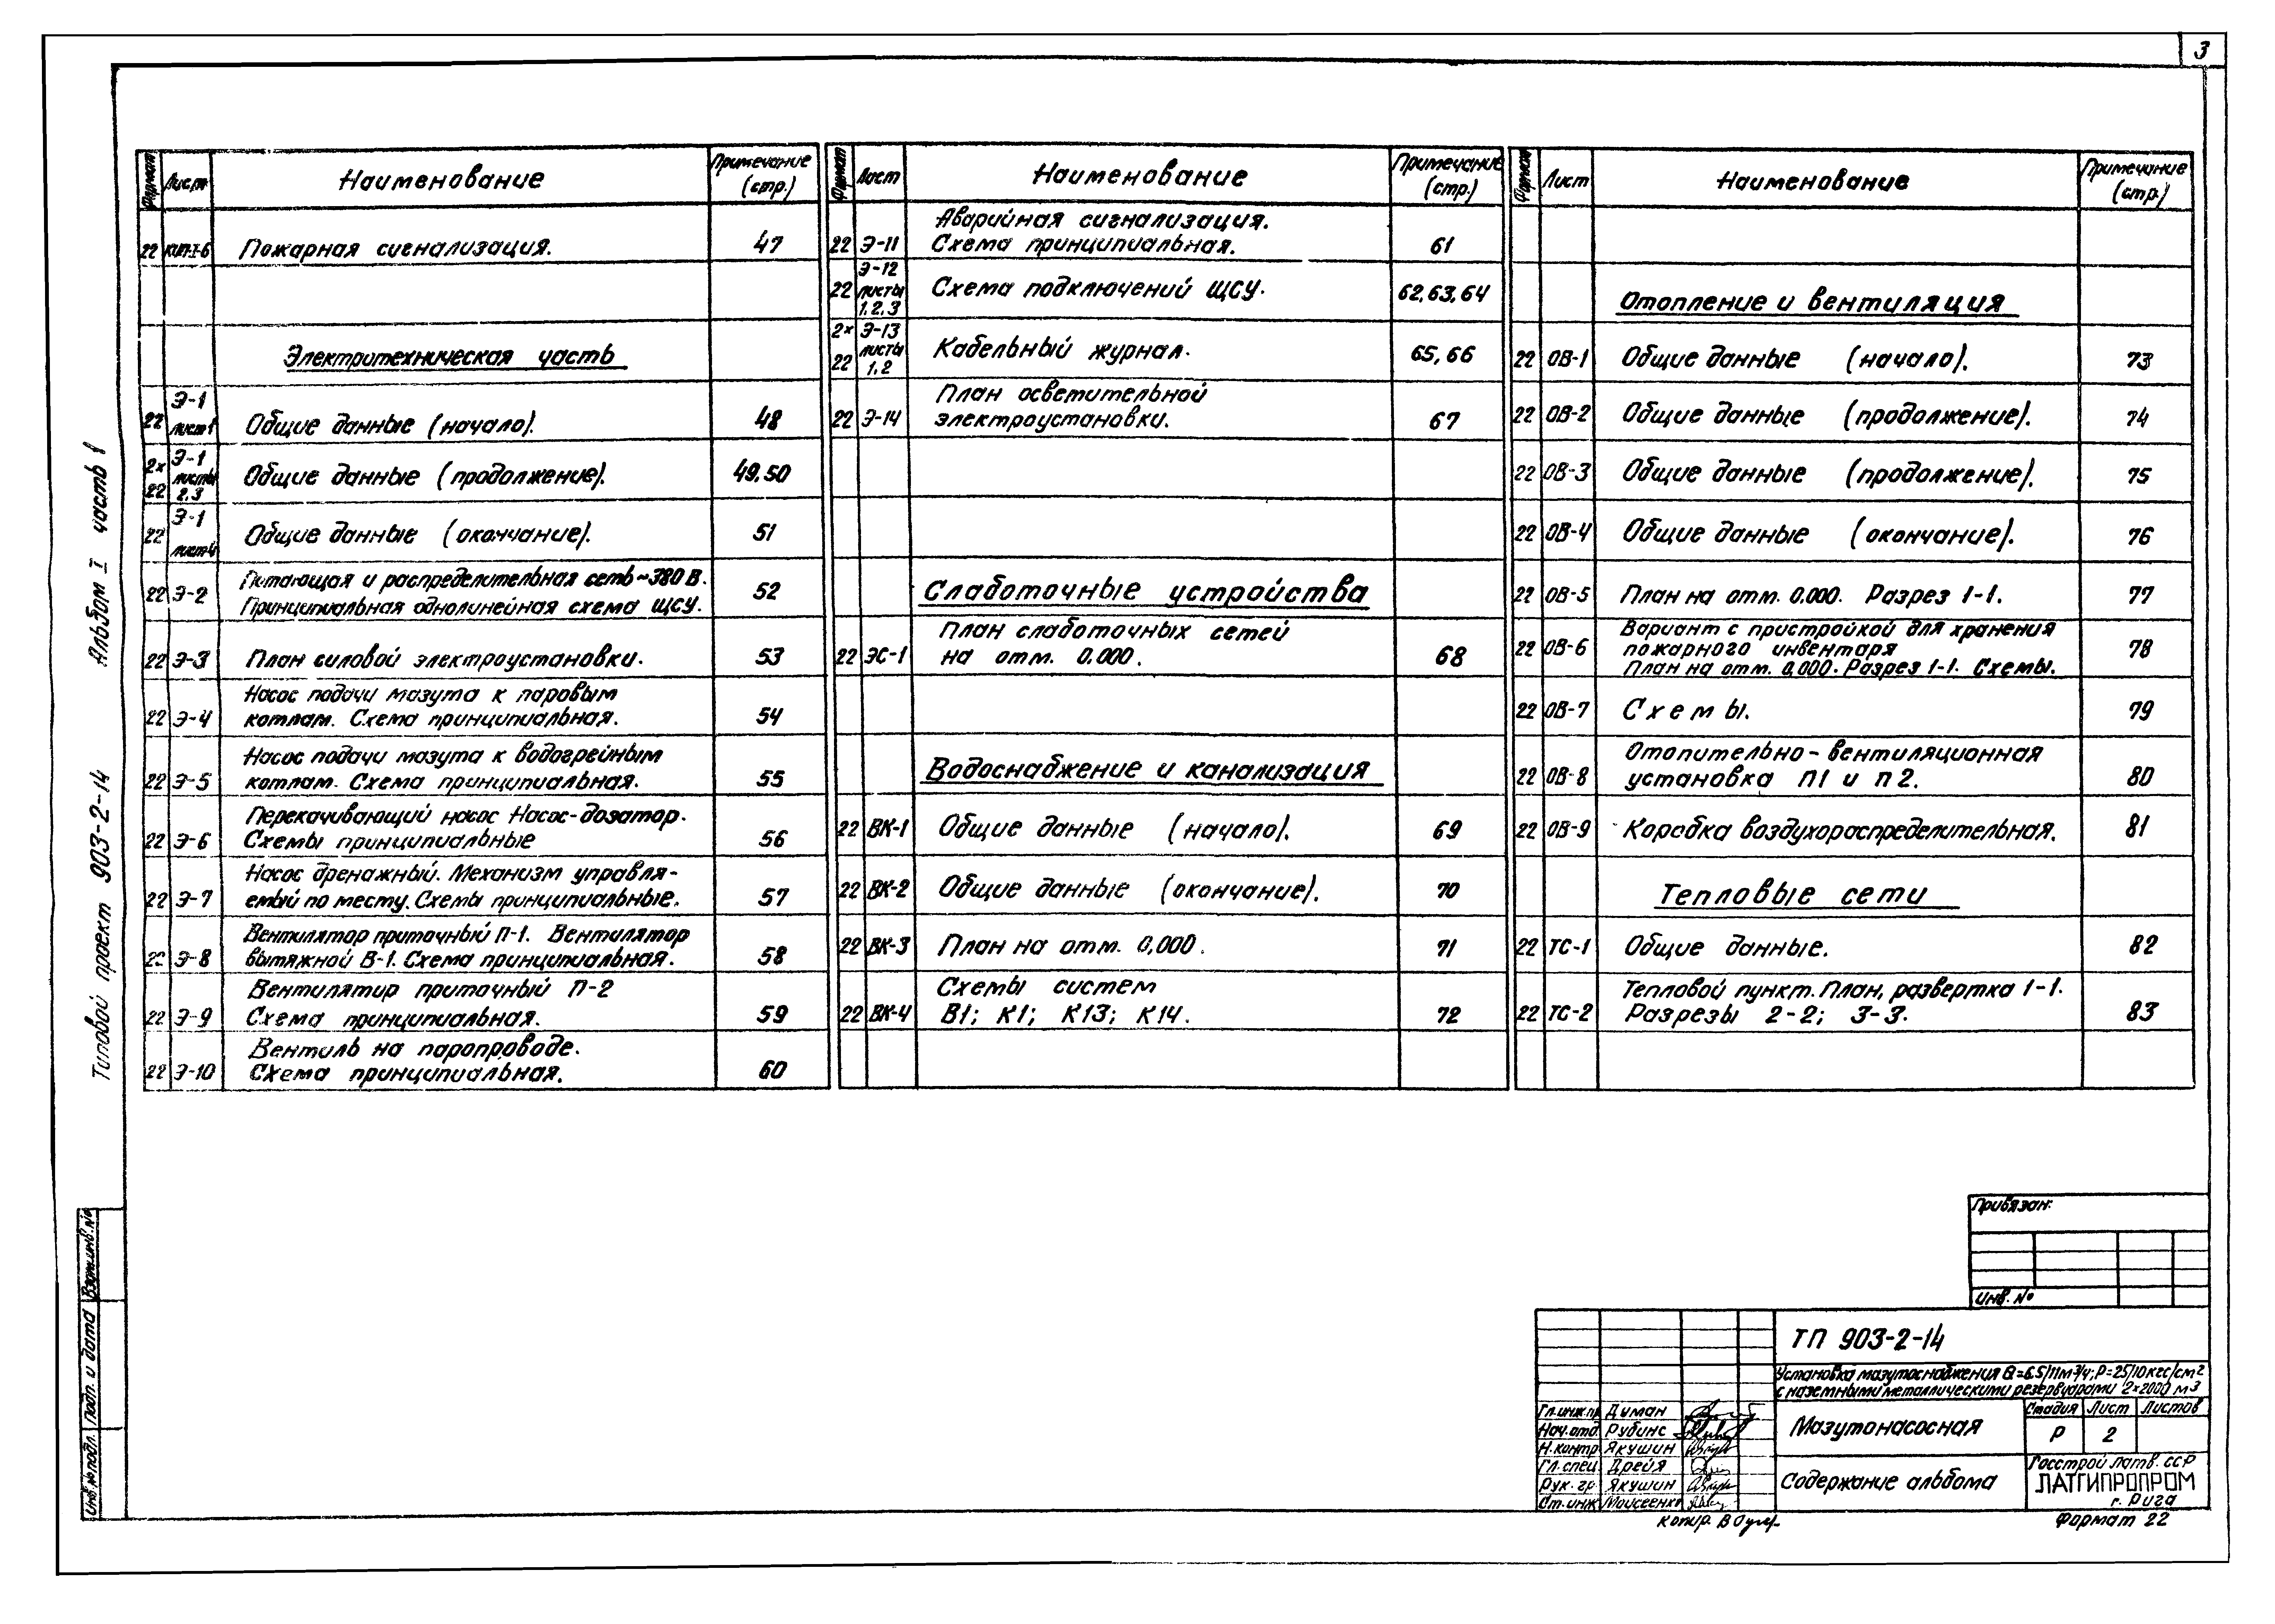 3
Формат Лист Наименование Примечание (стр.)
22 КИП-I-6 Пожарная сигнализация. 47
Электротехническая часть
22 Э-1 лист 1 Общие данные (начало). 48
2х22 Э-1 листы 2,3 Общие данные (продолжение). 49,50
22 Э-1 лист 4 Общие данные (окончание). 51
22 Э-2 Питающая и распределительная сеть ~380 В.
Принципиальная однолинейная схема ЩСУ. 52
22 Э-3 План силовой электроустановки. 53
Насос подачи мазута к паровым
22 Э-4 котлам. Схема принципиальная. 54
Насос подачи мазута к водогрейным
22 Э-5 котлам. Схема принципиальная. 55
Перекачивающий насос Насос-дозатор.
22 Э-6 Схемы принципиальные 56
Насос дренажный. Механизм управля-
22 Э-7 емый по месту. Схемы принципиальные. 57
Вентилятор приточный П-1. Вентилятор
22 Э-8 вытяжной В-1. Схема принципиальная. 58
Вентилятир приточный П-2
22 Э-9 Схема принципиальная. 59
Вентиль на паропроводе.
22 Э-10 Схема принципиальная. 60
Формат Лист Наименование Примечание (стр.)
Аварийная сигнализация.
22 Э-11 Схема принципиальная. 61
22 Э-12 листы 1,2,3 Схема подключений ЩСУ. 62,63,64
2х22 Э-13 листы 1,2 Кабельный журнал. 65,66
План осветительной
22 Э-14 электроустановки. 67
Слаботочные устройства
План слаботочных сетей
22 ЭС-1 на отм. 0.000. 68
Водоснабжение и канализация
22 ВК-1 Общие данные (начало). 69
22 ВК-2 Общие данные (окончание). 70
22 ВК-3 План на отм. 0,000. 71
Схемы систем
22 ВК-4 В1; К1; К13; К14. 72
Формат Лист Наименование Примечание (стр.)
Отопление и вентиляция
22 ОВ-1 Общие данные (начало). 73
22 ОВ-2 Общие данные (продолжение). 74
22 ОВ-3 Общие данные (продолжение). 75
22 ОВ-4 Общие данные (окончание). 76
22 ОВ-5 План на отм. 0.000. Разрез 1-1. 77
Вариант с пристройкой для хранения
22 ОВ-6 пожарного инвентаря 78
План на отм. 0,000. Разрез 1-1. Схемы.
22 ОВ-7 Схемы. 79
Отопительно-вентиляционная
22 ОВ-8 установка П1 и П2. 80
22 ОВ-9 Коробка воздухораспределительная. 81
Тепловые сети
22 ТС-1 Общие данные. 82
Тепловой пункт. План, развертка 1-1.
22 ТС-2 Разрезы 2-2; 3-3. 83
Типовой проект 903-2-14 Альбом I часть 1
Инв.№подл. Подп. и дата Взам.инв.№
Привязан:
Инв. №
ТП 903-2-14
Установка мазутоснабжения Q=6.5/11м³/ч; Р=25/10кгс/см²
с наземными металлическими резервуарами 2×2000 м3
Гл.инж.пр Думан
Нач.отд. Рубинс
Н.контр. Якушин
Гл.спец. Дрейя
Рук.гр Якушин
Ст.инж Моисеенко
Мазутонасосная
Стадия Лист Листов
Р 2
Содержание альбома
Госстрой Латв. ССР
ЛАТГИПРОПРОМ
г. Рига
копир.
Формат 22